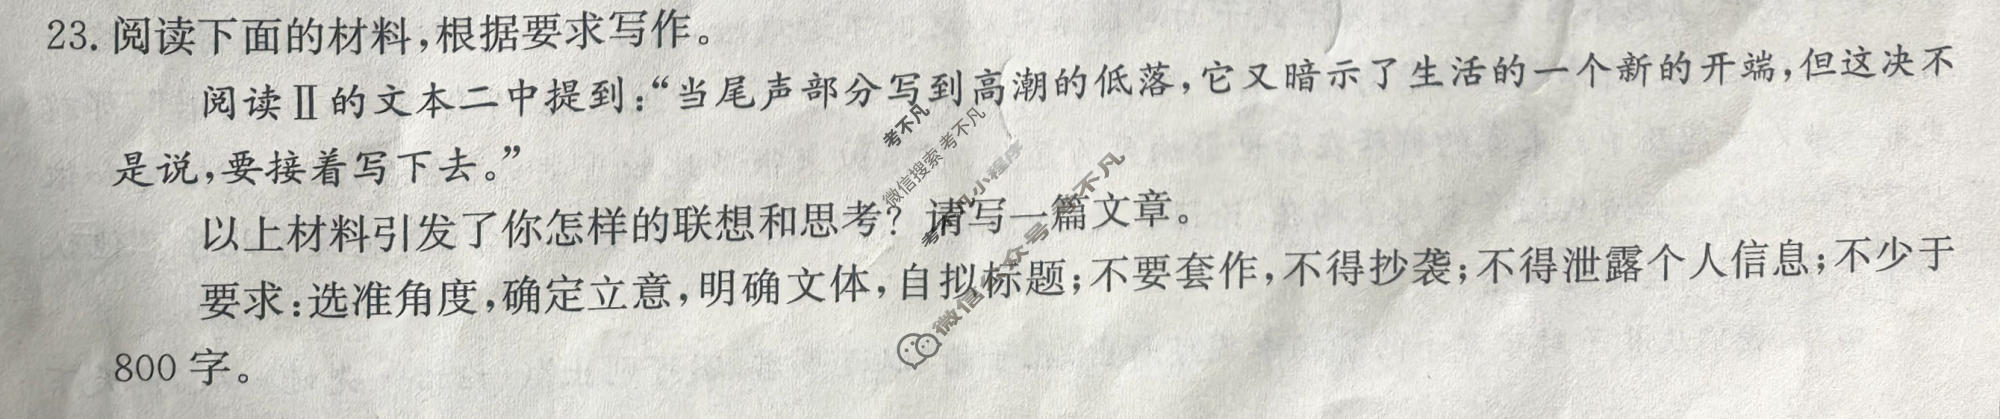 23. 阅读下面的材料,根据要求写作。
阅读Ⅱ的文本二中提到:“当尾声部分写到高潮的低落,它又暗示了生活的一个新的开端,但这决不
是说,要接着写下去。”
以上材料引发了你怎样的联想和思考?请写一篇文章。
要求:选准角度,确定立意,明确文体,自拟标题;不要套作,不得抄袭;不得泄露个人信息;不少于
800字。
考不凡
微信搜索 考不凡
考不凡小程序
微信公众号 考不凡